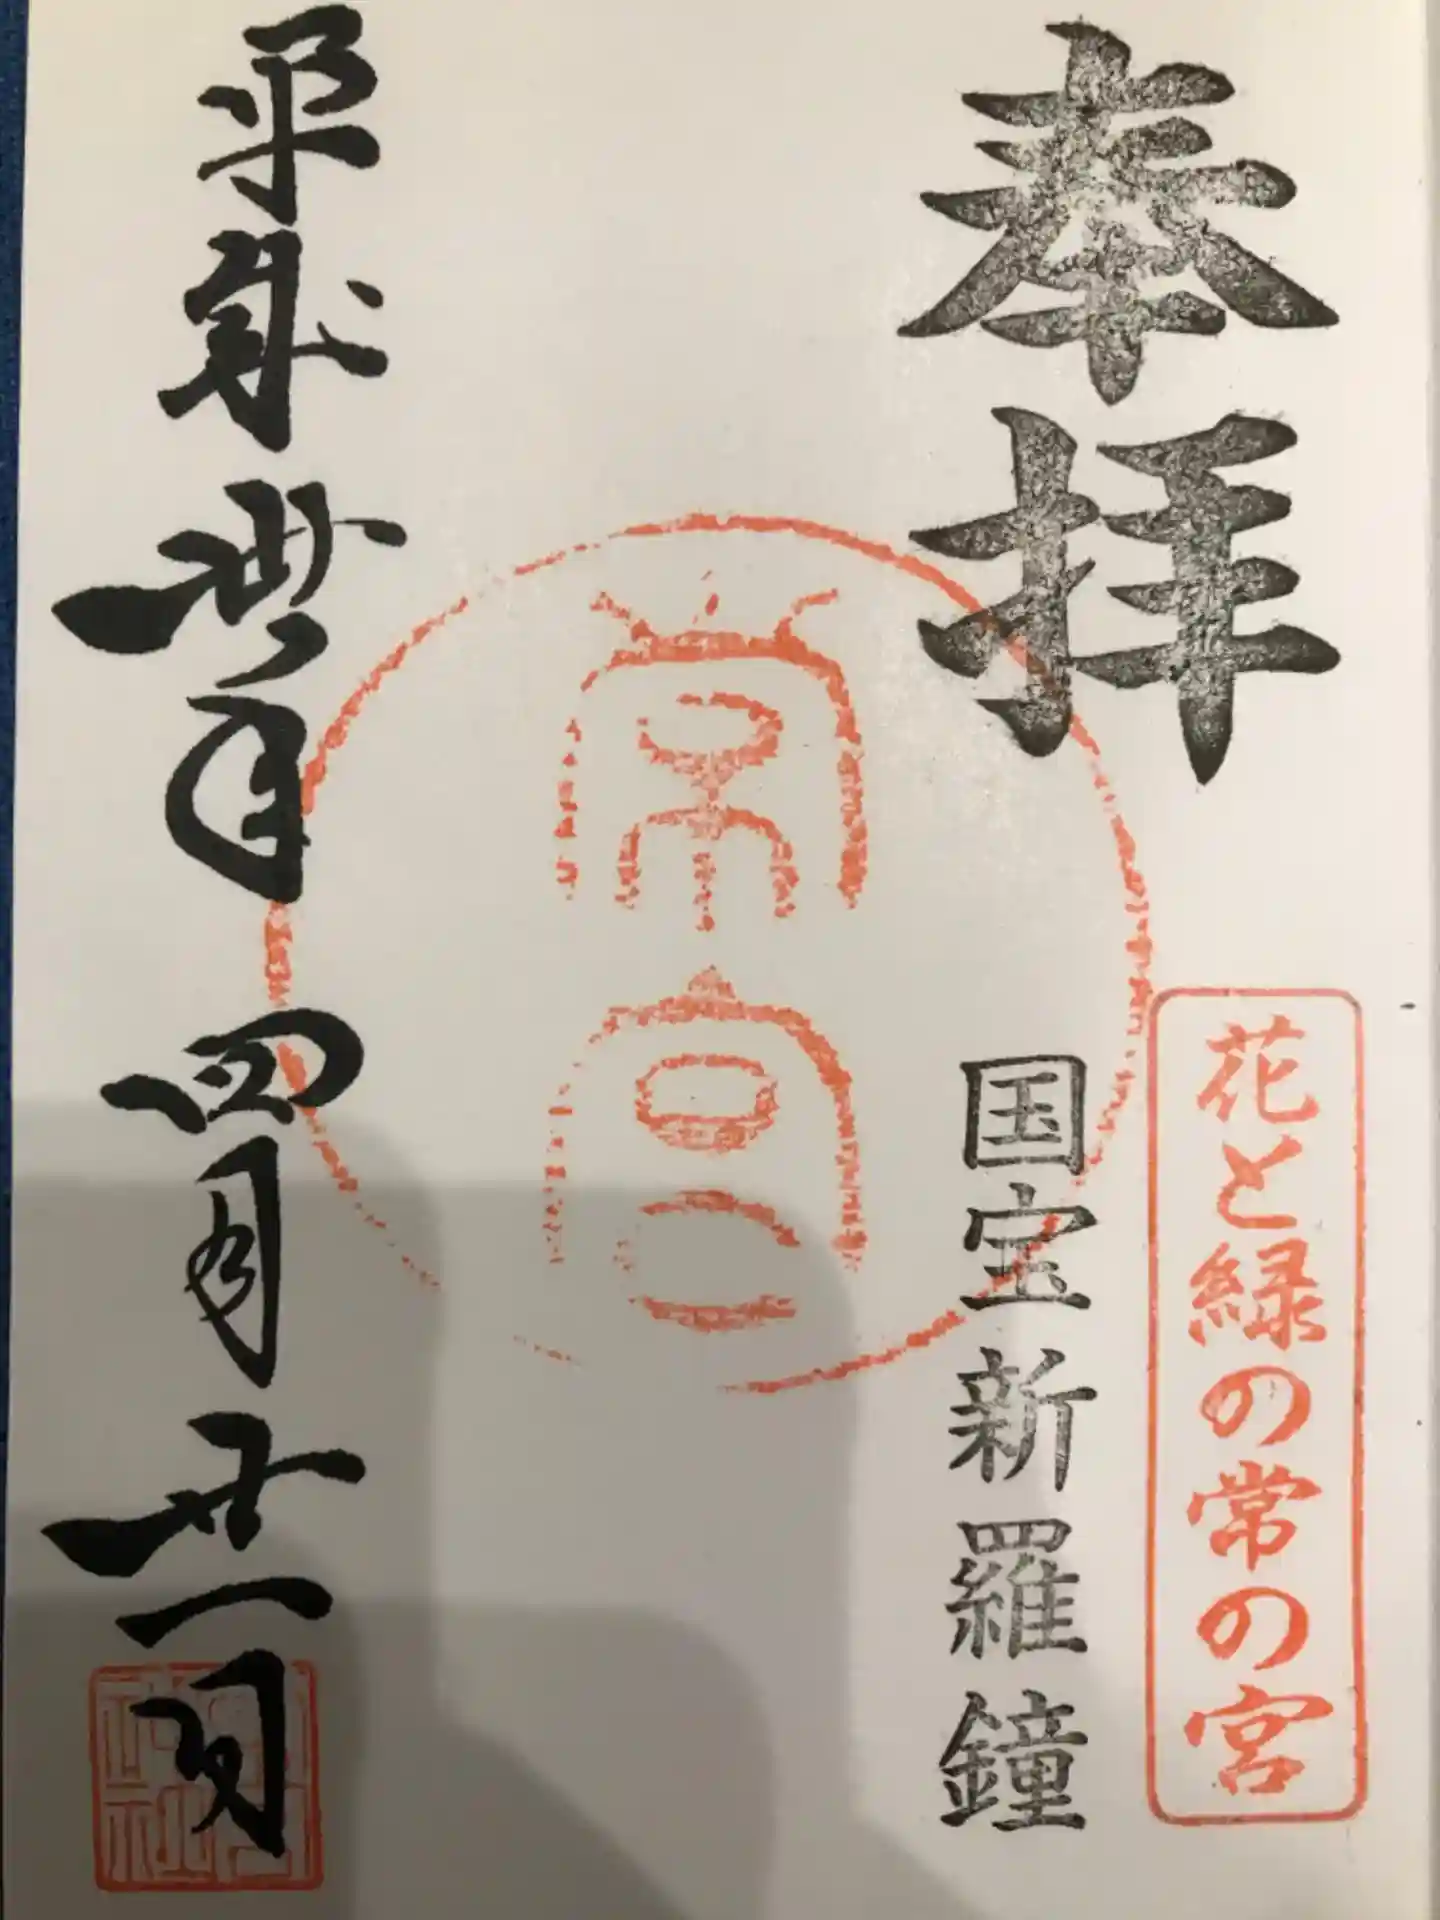 奉拝
花と緑の常の宮
国宝新羅鐘
常宮
平成丗年四月廿一日